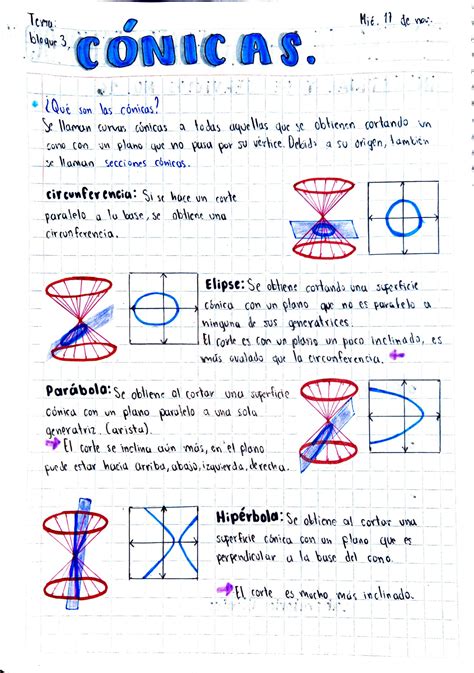 Tema:
bloque 3,
Mié. 17 de nov.
CÓNICAS.
¿Qué son las cónicas?
Se llaman curvas cónicas a todas aquellas que se obtienen cortando un
cono con un plano que no pasa por su vértice. Debido a su origen, tambien
se llaman secciones cónicas.
circunferencia: Si se hace un corte
paralelo a la base, se obtiene una
circunferencia.
Elipse: Se obtiene cortando una superficie
cónica con un plano que no es paralelo a
ninguna de sus generatrices.
El corte es con un plano un poco inclinado, es
más ovalado que la circunferencia.
Parábola: Se obtiene al cortar una superficie
cónica con un plano paralelo a una sola
generatriz. (arista).
El corte se inclina aún más, en el plano
puede estar hacia arriba, abajo, izquierda, derecha.
Hipérbola: Se obtiene al cortar una
superficie cónica con un plano que es
perpendicular a la base del cono.
El corte es mucho más inclinado.